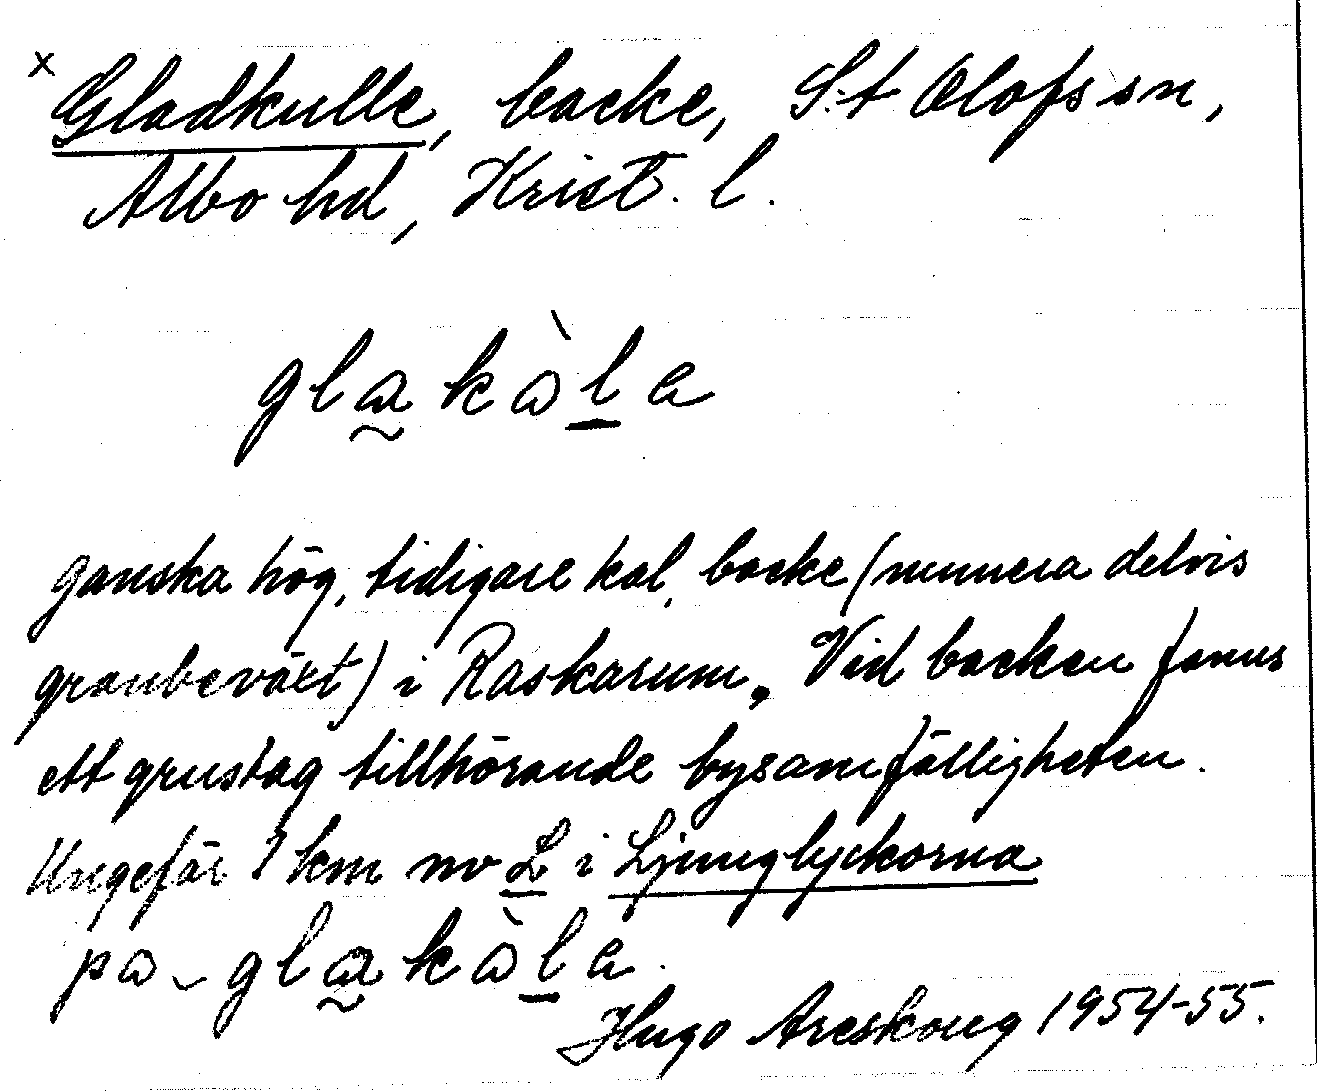 x Gladkulle, backe, S:t Olofs sn,
Albo hd, Krist. l.
glakàla
ganska hög, tidigare kal, backe (numera delvis
granbeväxt) i Raskarum. Vid backen fanns
ett grustag tillhörande bysamfälligheten.
Ungefär 1 km nv L i Ljunglyckorna
pa glakàla.
Hugo Areskoug 1954-55.